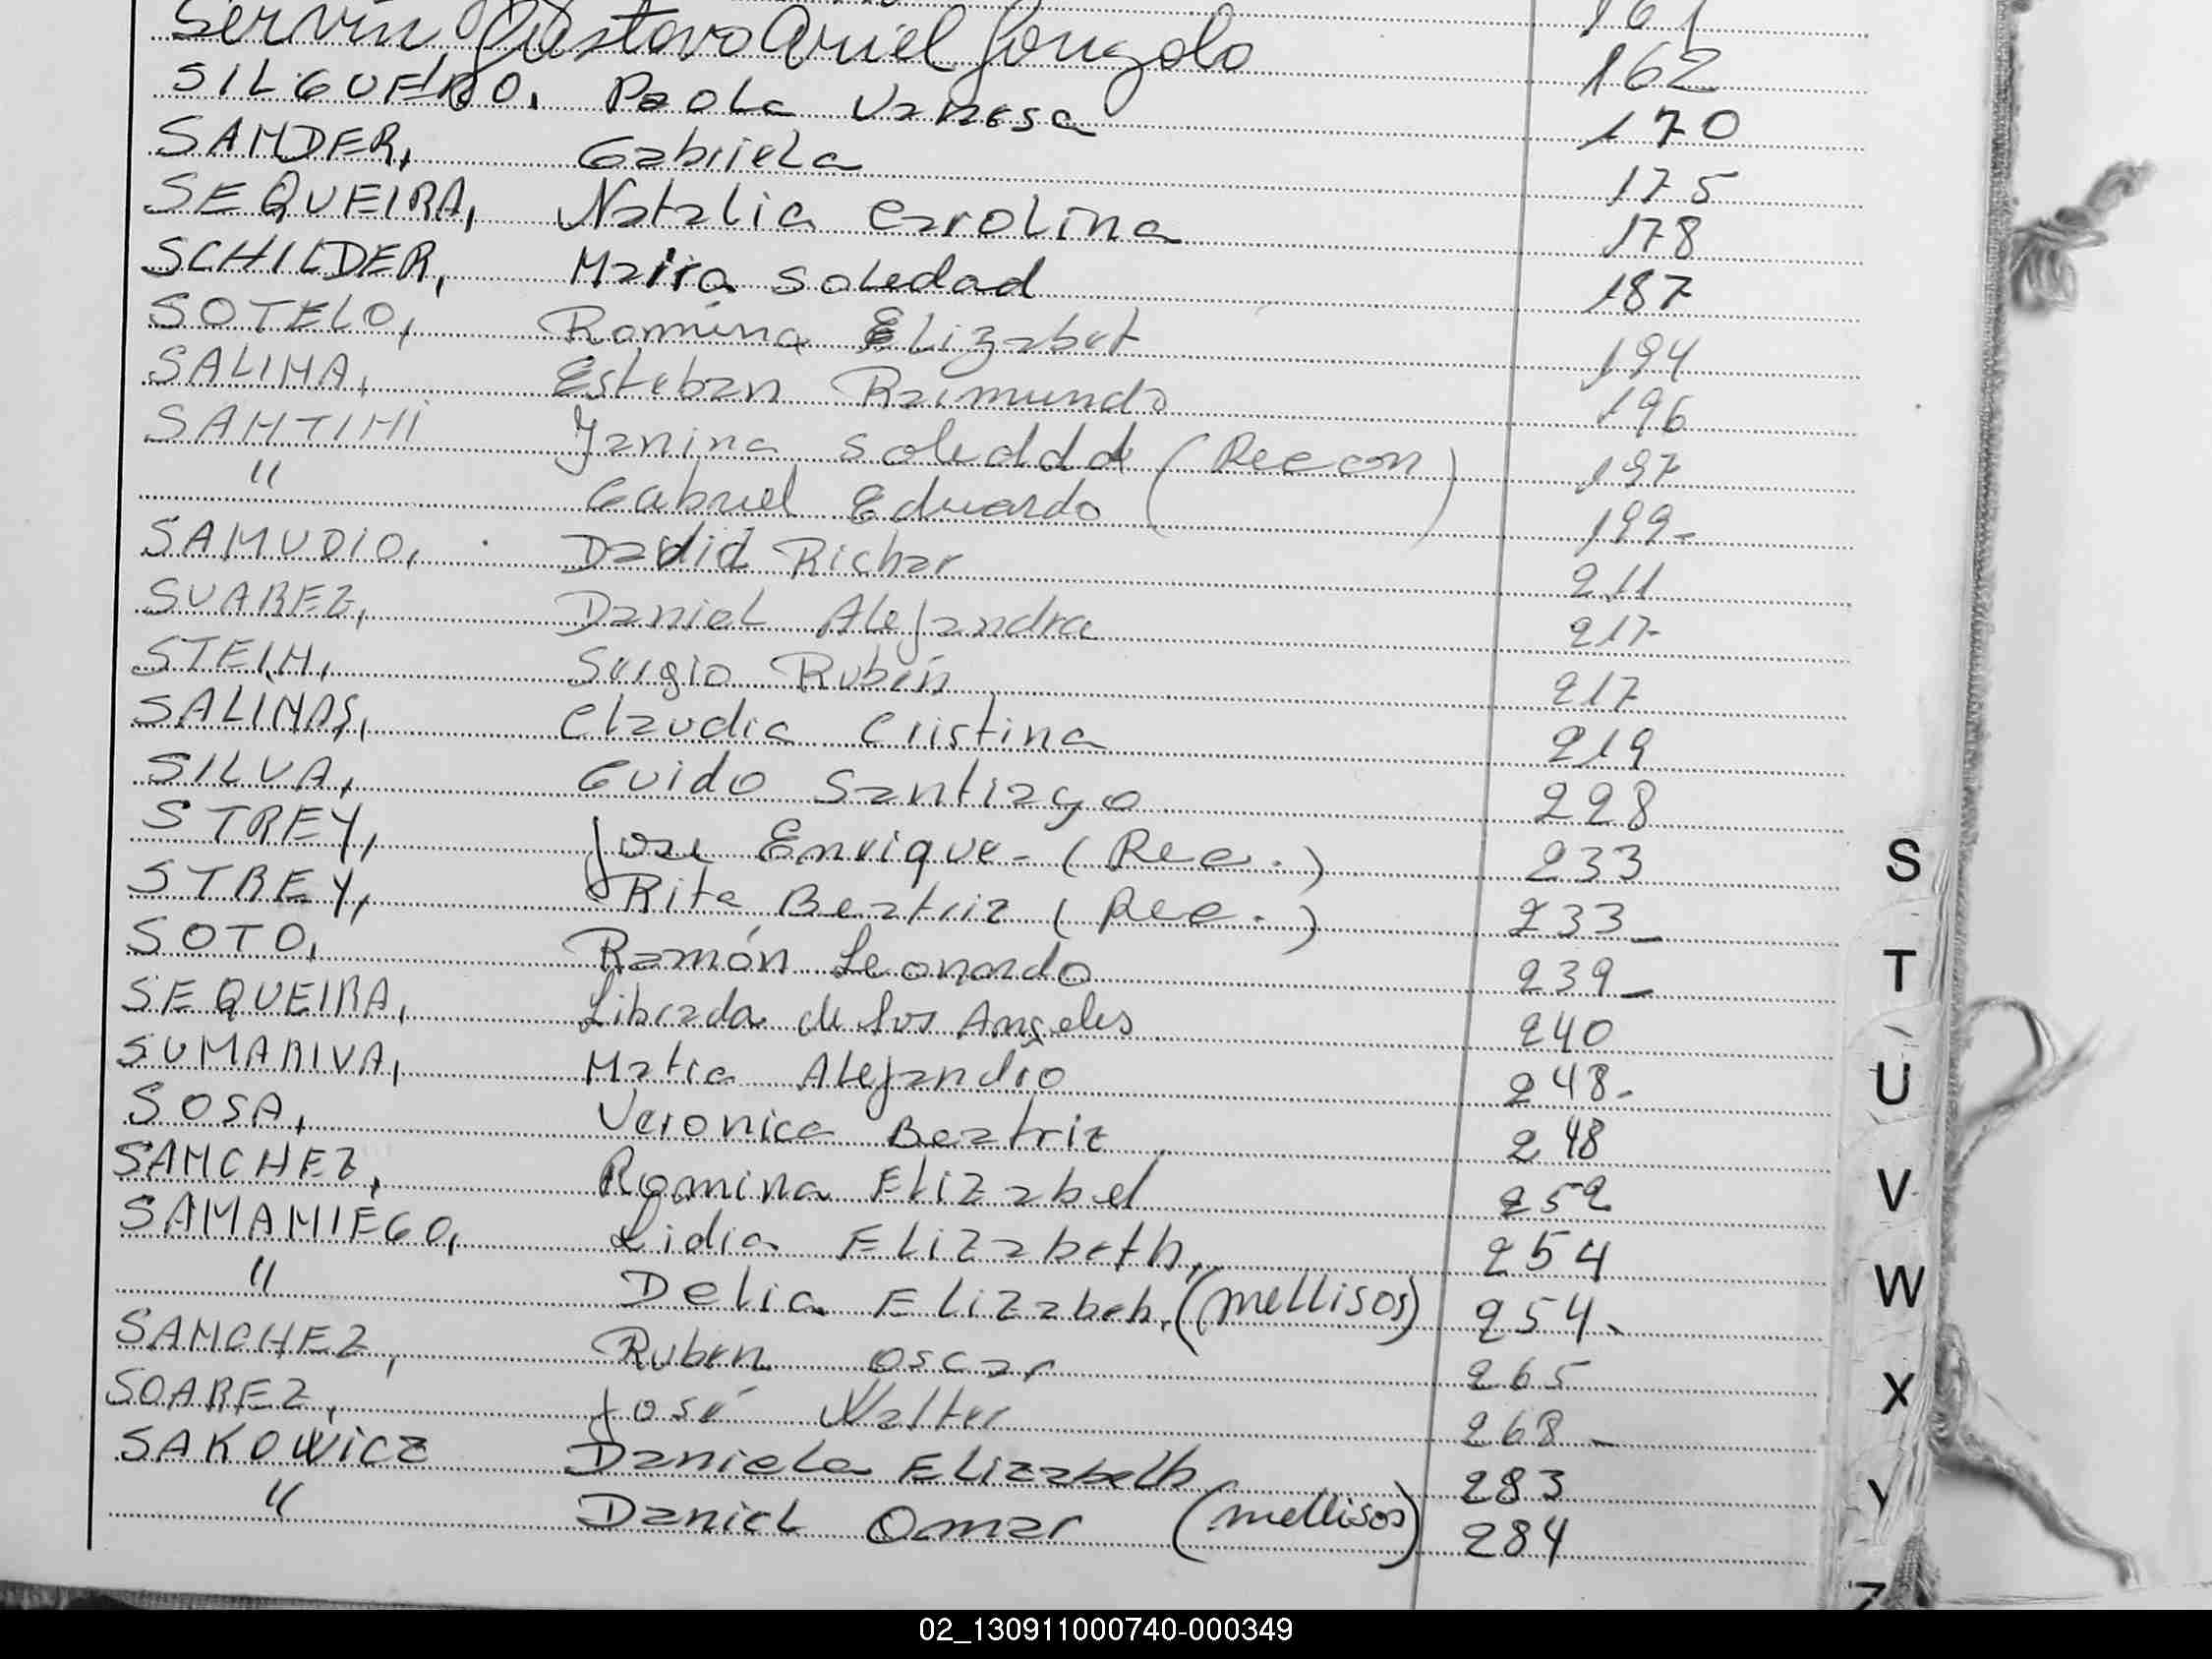 161
Servin Gustavo Ariel Gonzalo 162
SILGUEIRO, Paola Vanesa 170
SANDER, Gabriela 175
SEQUEIRA, Natalia Carolina 178
SCHILDER, Maira Soledad 187
SOTELO, Romina Elizabet 194
SALINA, Esteban Raimundo 196
SANTINI Yanina Soledad (Recon) 197
" Gabriel Eduardo 199-
SAMUDIO, David Richar 211
SUAREZ, Daniel Alejandra 217-
STEIN, Sergio Rubén 217
SALINAS, Claudia Cristina 219
SILVA, Guido Santiago 228
STREY, Jose Enrique- (Rec.) 233
STREY, Rita Beatriz (Rec.) 233-
SOTO, Ramón Leonardo 239-
SEQUEIRA, Librada de los Angeles 240
SUMARIVA, Matia Alejandro 248-
SOSA, Veronica Beatriz 248
SANCHEZ, Romina Elizabel 252
SAMANIEGO, Lidia Elizabeth, 254
" Delia Elizabeh. (mellisos) 254-
SANCHEZ, Ruben Oscar 265
SOAREZ, José Walter 268-
SAKOWICZ Daniela Elizabeth 283
" Daniel Omar (mellisos) 284
S
T
U
V
W
X
Y
Z
02_130911000740-000349